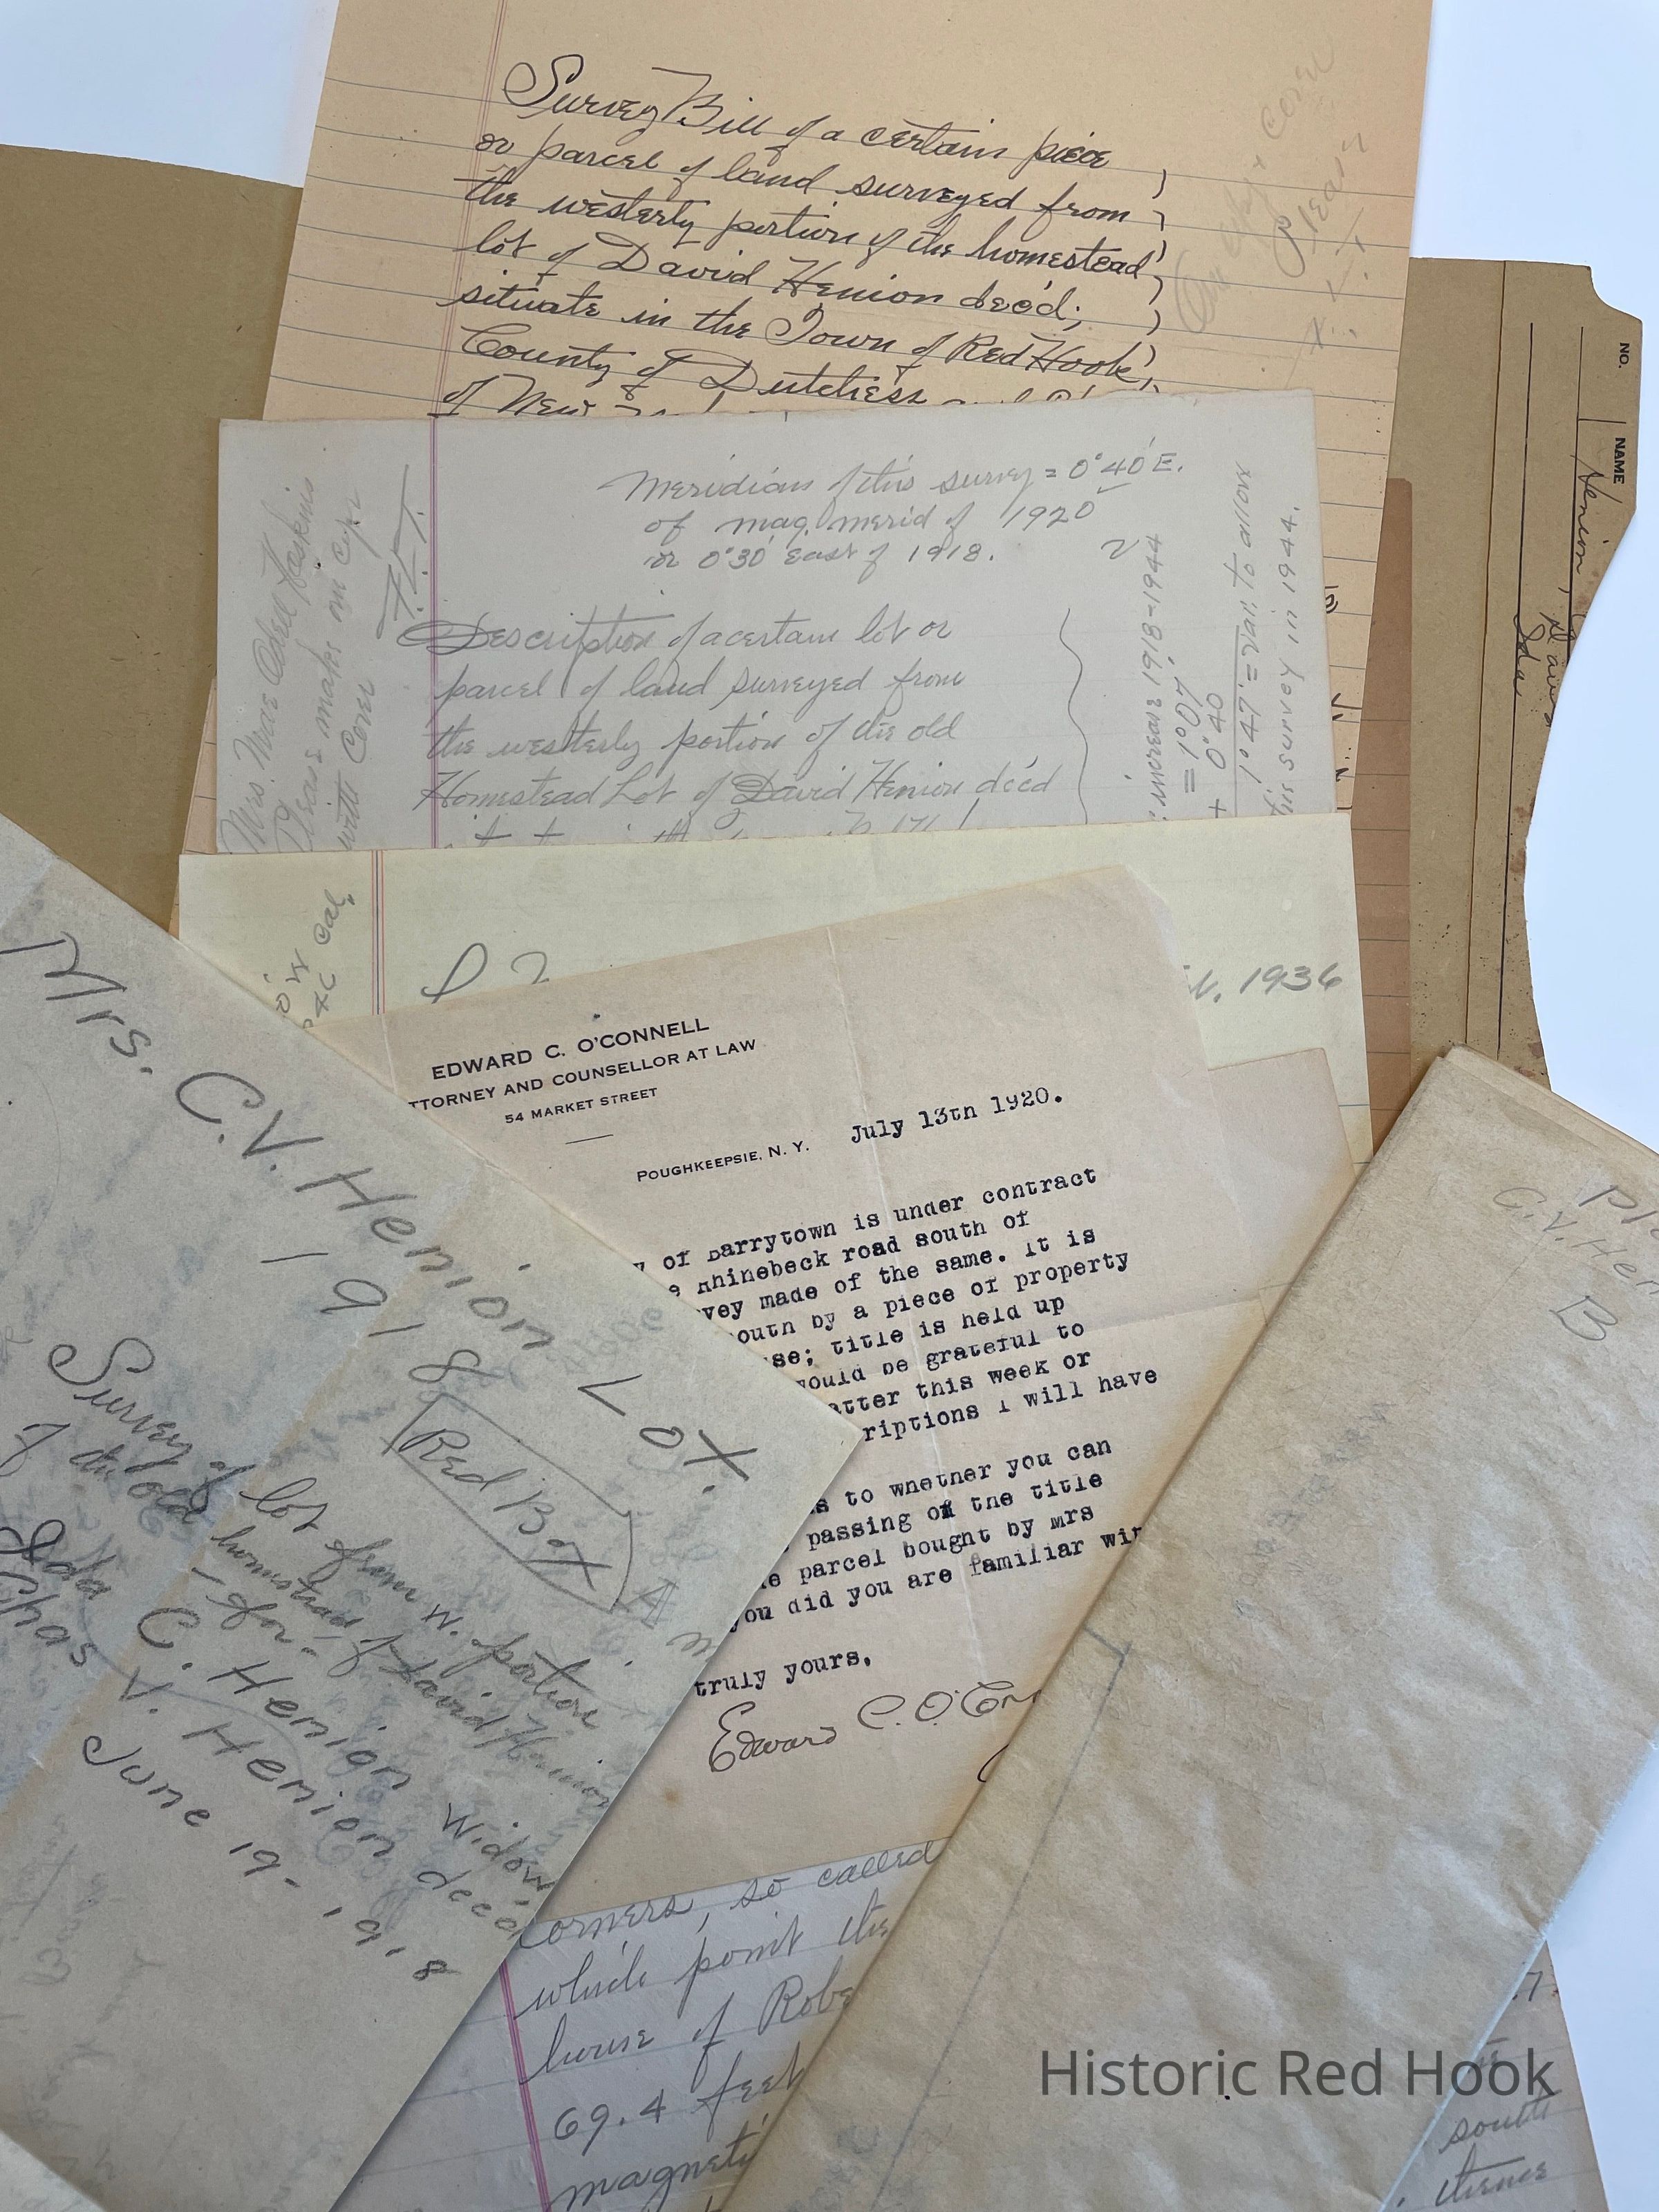 Survey Bill of a certain piece
or parcel of land surveyed from
the westerly portion of the homestead
lot of David Henion dec'd;
situate in the Town of Red Hook,
County of Dutchess
of New
cover
Please
NO.
NAME
Henion,
Ida
Meridian of this survey = 0°40' E.
of mag. merid of 1920
or 0°30' East of 1918.
Description of a certain lot or
parcel of land surveyed from
the westerly portion of the old
Homestead Lot of David Henion dec'd
Mrs. Mae Haskins
Please make
with Cover
F.L.T.
increase 1918-1944
= 1°07'
+ 0°40
1°47' = Var. to allow
this survey in 1944.
Cal.
1936
EDWARD C. O'CONNELL
TTORNEY AND COUNSELLOR AT LAW
54 MARKET STREET
POUGHKEEPSIE, N. Y. July 13th 1920.
of Barrytown is under contract
Rhinebeck road south of
vey made of the same. It is
outh by a piece of property
se; title is held up
would be grateful to
atter this week or
riptions I will have
s to whether you can
passing of the title
e parcel bought by mrs
you did you are familiar wit
truly yours,
Edward C. O'Con
Mrs. C.V. Henion Lot.
1918
Red Box
Survey of lot from W. portion
of the old homestead of David Henion
-for-
Ida C. Henion Widow
Chas V. Henion dec'd
June 19-1918
C.V. Hen
B
orners, so called
which point the
house of Robe
69.4 feet
magneti
south
thence
Historic Red Hook